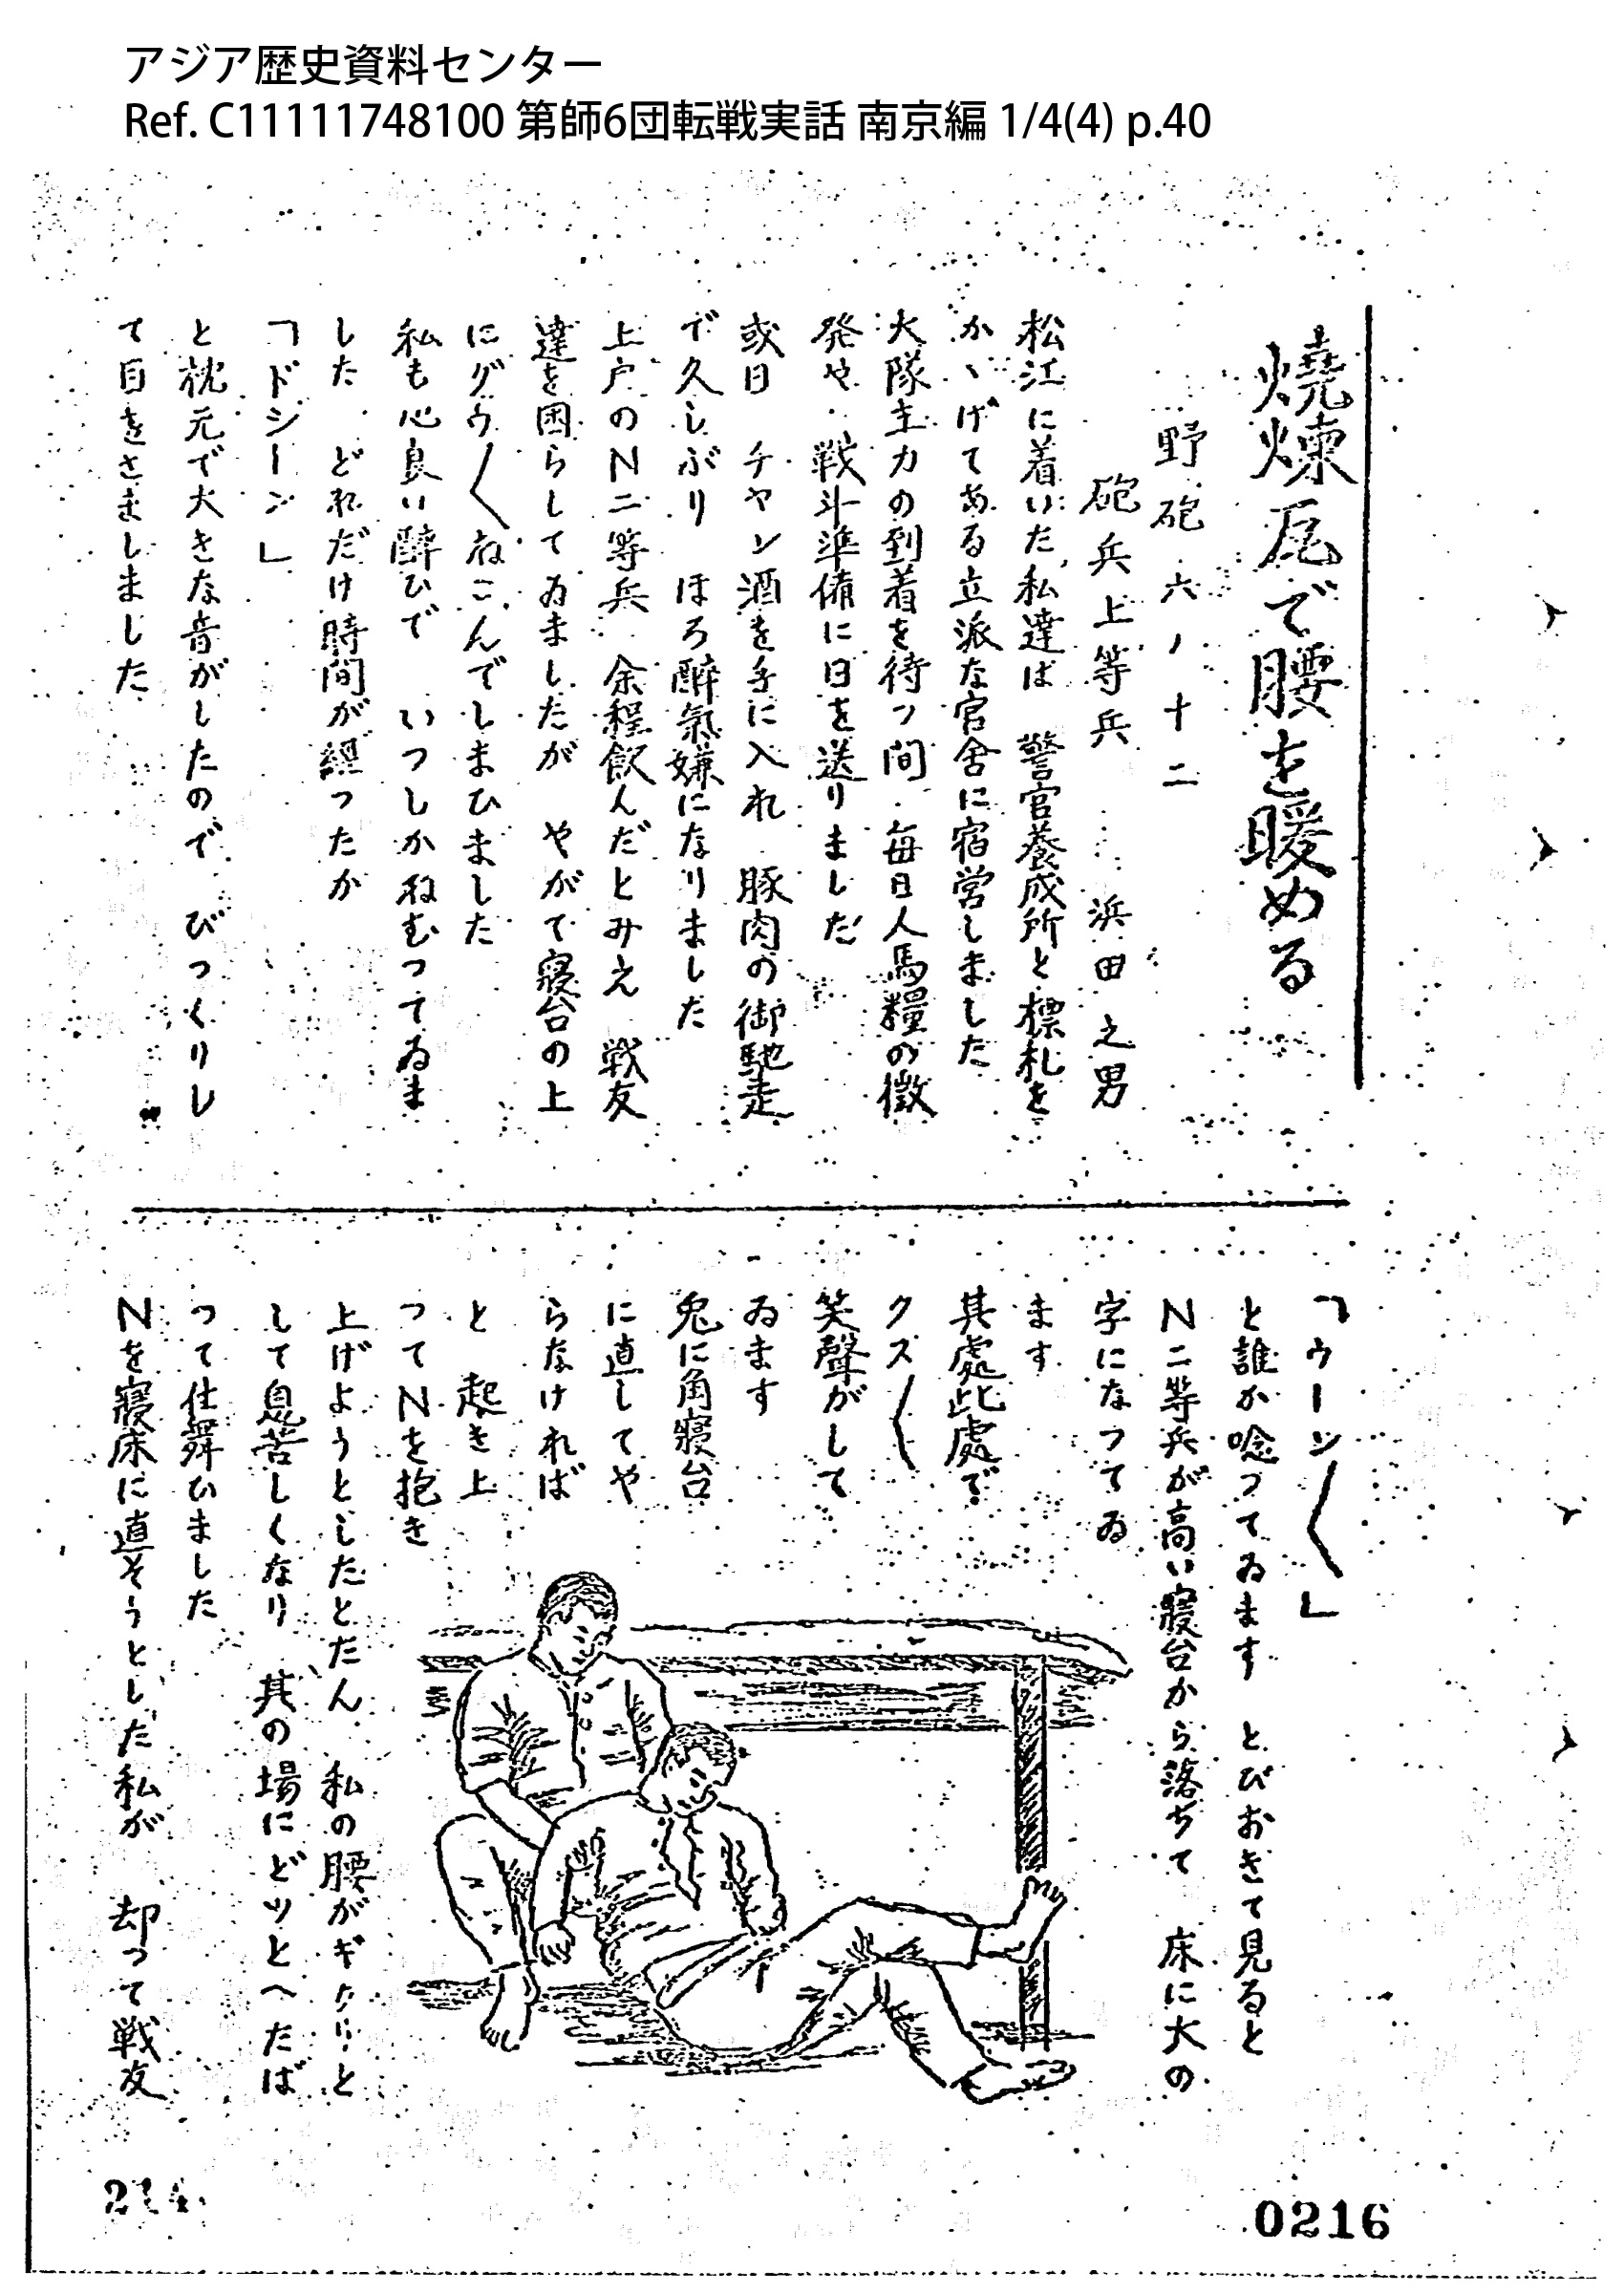 アジア歴史資料センター
Ref. C11111748100 第師6団転戦実話 南京編 1/4(4) p.40
焼煉瓦で腰を暖める
野砲六ノ十二
砲兵上等兵 浜田之男
松江に着いた私達は 警官養成所と標札を
かゝげてある立派な官舎に宿営しました
大隊主力の到着を待つ間 毎日人馬糧の徴
発や 戦斗準備に日を送りました
或日 チヤン酒を手に入れ 豚肉の御馳走
で久しぶり ほろ酔氣嫌になりました
上戸のN二等兵 余程飲んだとみえ 戦友
達を困らしてゐましたが やがて寝台の上
にグウ〱ねこんでしまひました
私も心良い酔ひで いつしかねむつてゐま
した どれだけ時間が経つたか
「ドシーン」
と枕元で大きな音がしたので びつくりし
て目をさましました
「ウーン〱」
と誰か唸つてゐます とびおきて見ると
N二等兵が高い寝台から落ちて 床に大の
字になつてゐ
ます
其處此處で
クス〱
笑聲がして
ゐます
兎に角寝台
に直してや
らなければ
と 起き上
つてNを抱き
上げようとしたとたん 私の腰がギクリと
して息苦しくなり 其の場にどツとへたば
つて仕舞ひました
Nを寝床に直そうとした私が 却つて戦友
214
0216